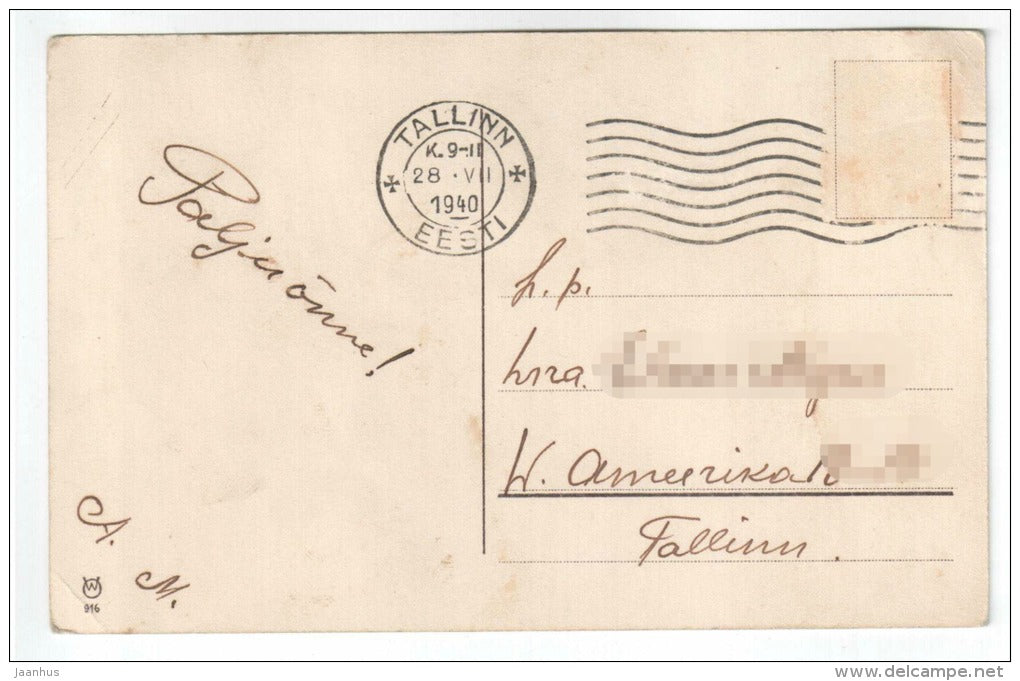 TALLINN
K. 9-11
28 · VII
1940
EESTI
Palju õnne!
A.
M.
W
916
h. p.
hra.
W. Ameerika
Tallinn.
jaanhus
www.delcampe.net